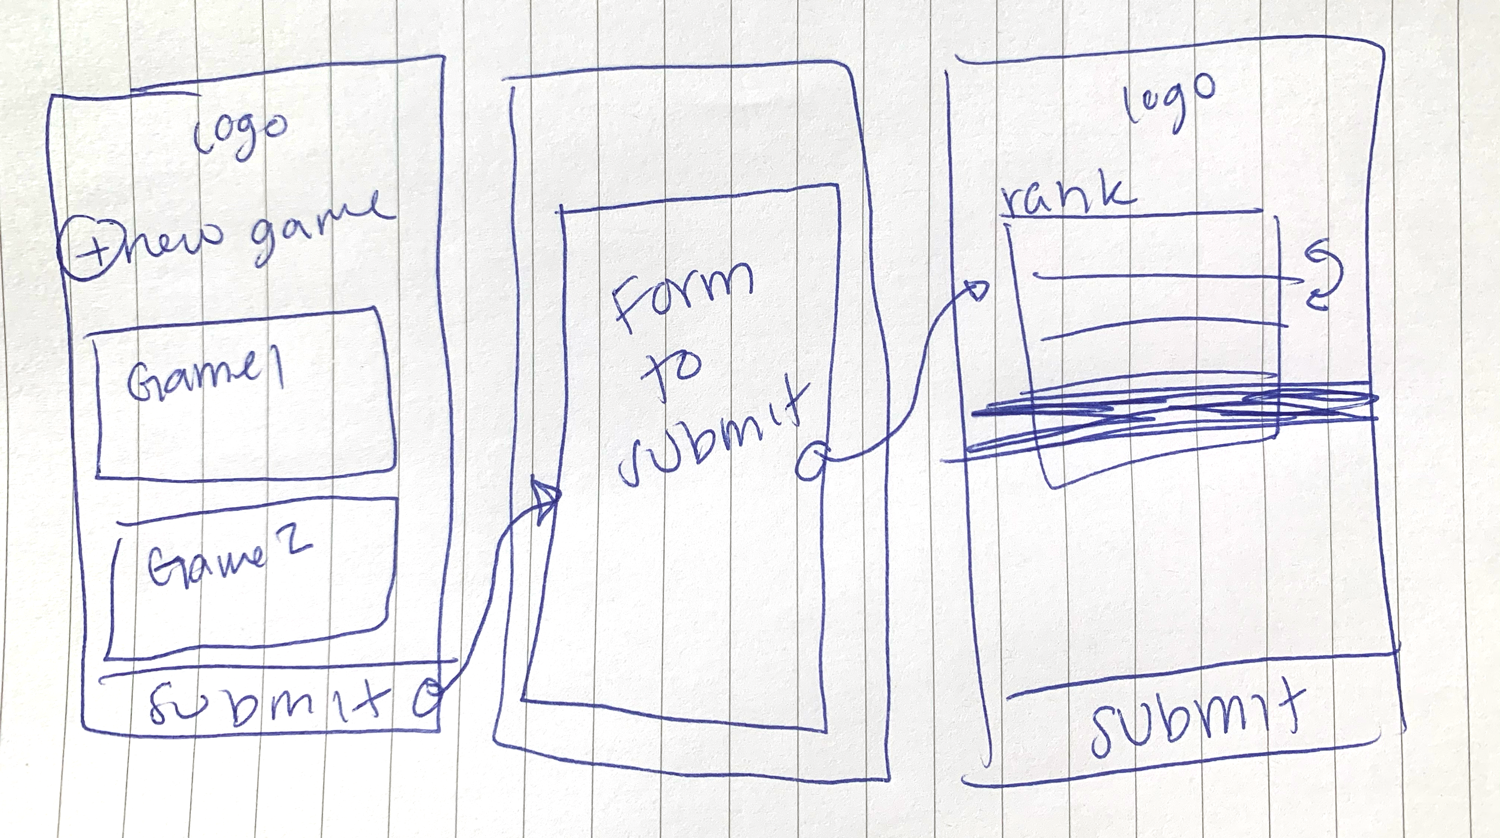 logo
+ new game
Game 1
Game 2
submit
Form
to
submit
logo
rank
submit